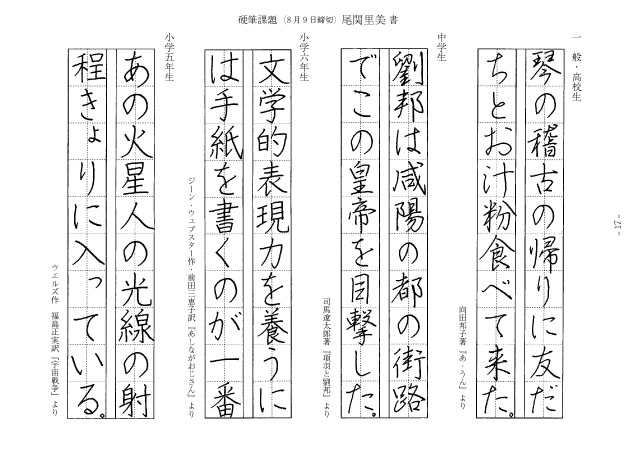 硬筆課題（8月9日締切）尾関里美 書
一般・高校生
琴の稽古の帰りに友だ
ちとお汁粉食べて来た。
向田邦子著『あ・うん』より
中学生
劉邦は咸陽の都の街路
でこの皇帝を目撃した。
司馬遼太郎著『項羽と劉邦』より
小学六年生
文学的表現力を養うに
は手紙を書くのが一番
ジーン・ウェブスター作・前田三恵子訳『あしながおじさん』より
小学五年生
あの火星人の光線の射
程きょりに入っている。
ウエルズ作 福島正実訳『宇宙戦争』より
- 17 -